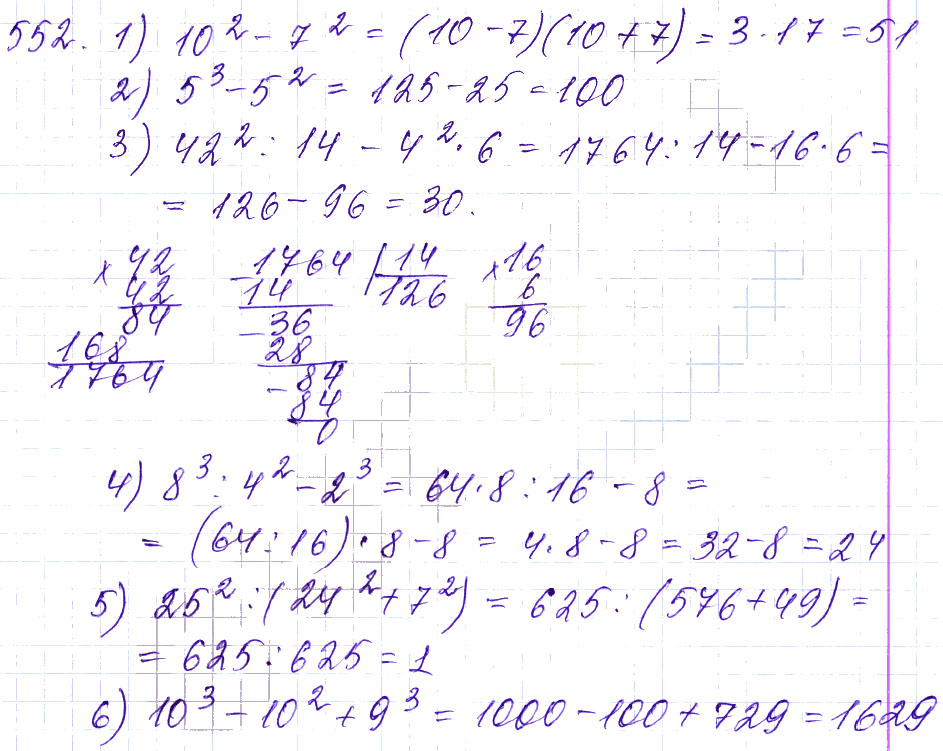 552. 1) 10² - 7² = (10 - 7)(10 + 7) = 3 · 17 = 51
2) 5³ - 5² = 125 - 25 = 100
3) 42² : 14 - 4² · 6 = 1764 : 14 - 16 · 6 =
= 126 - 96 = 30.
× 42 - 1764 | 14 × 16
42 14 126 6
84 - 36 96
168 28
1764 - 84
84
0
4) 8³ : 4² - 2³ = 64 · 8 : 16 - 8 =
= (64 : 16) · 8 - 8 = 4 · 8 - 8 = 32 - 8 = 24
5) 25² : (24² + 7²) = 625 : (576 + 49) =
= 625 : 625 = 1
6) 10³ - 10² + 9³ = 1000 - 100 + 729 = 1629